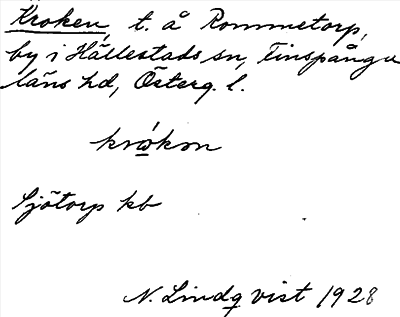 Kroken, t. å Rommetorp,
by i Hällestads sn, Finspånga
läns hd, Österg. l.
krώkon
Sjötorp kb
N. Lindqvist 1928